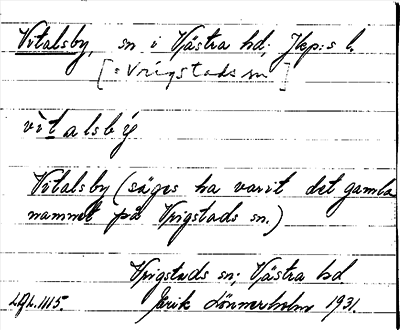 Vitalsby, sn i Västra hd; Jkp:s l.
[= Vrigstads sn]
vitalsbý
Vitalsby (säges ha varit det gamla
namnet på Vrigstads sn.)
Vrigstads sn; Västra hd
Erik Lönnerholm 1931.